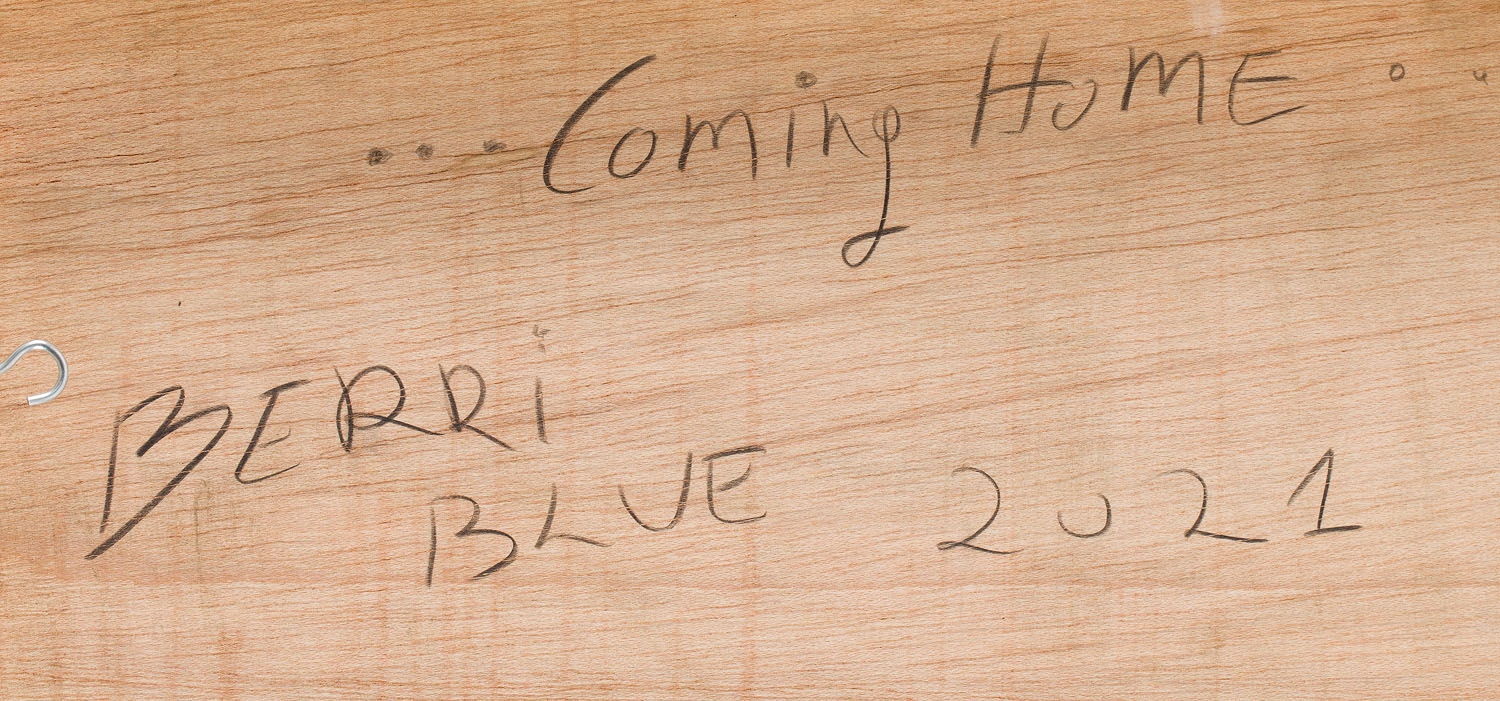 ...Coming HoME..
BERRi
BLUE 2021